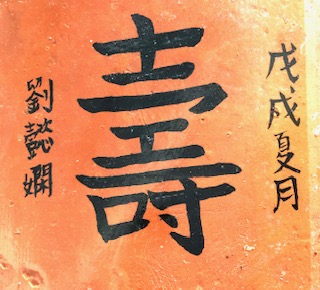 戊戌夏月
壽
劉懿嫻